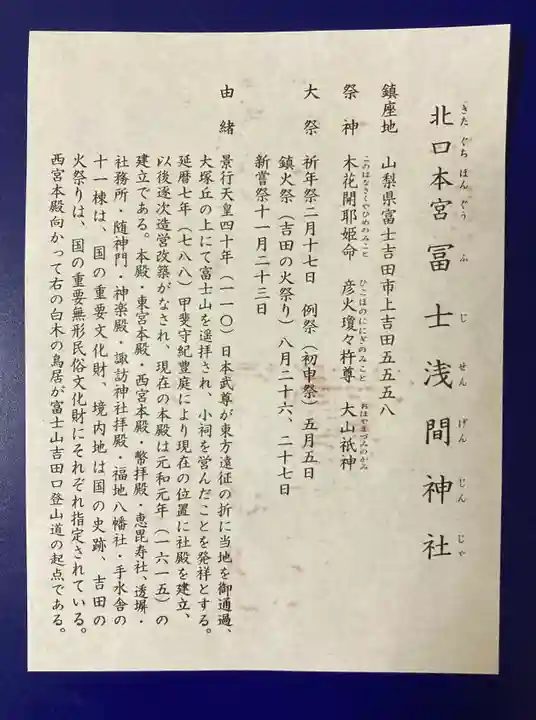 北口本宮冨士浅間神社
きたぐちほんぐうふじせんげんじんじゃ
鎮座地 山梨県富士吉田市上吉田五五五八
祭神 木花開耶姫命 彦火瓊々杵尊 大山祇神
このはなさくやひめのみこと ひこほのににぎのみこと おほやまづみのかみ
大祭 祈年祭二月十七日 例祭(初申祭)五月五日
鎮火祭(吉田の火祭り)八月二十六、二十七日
新嘗祭十一月二十三日
由緒 景行天皇四十年(一一〇)日本武尊が東方遠征の折に当地を御通過、
大塚丘の上にて富士山を遥拝され、小祠を営んだことを発祥とする。
延暦七年(七八八)甲斐守紀豊庭により現在の位置に社殿を建立、
以後逐次造営改築がなされ、現在の本殿は元和元年(一六一五)の
建立である。本殿・東宮本殿・西宮本殿・幣拝殿・恵毘寿社、透塀・
社務所・随神門・神楽殿・諏訪神社拝殿・福地八幡社・手水舎の
十一棟は、国の重要文化財、境内地は国の史跡、吉田の
火祭りは、国の重要無形民俗文化財にそれぞれ指定されている。
西宮本殿向かって右の白木の鳥居が富士山吉田口登山道の起点である。